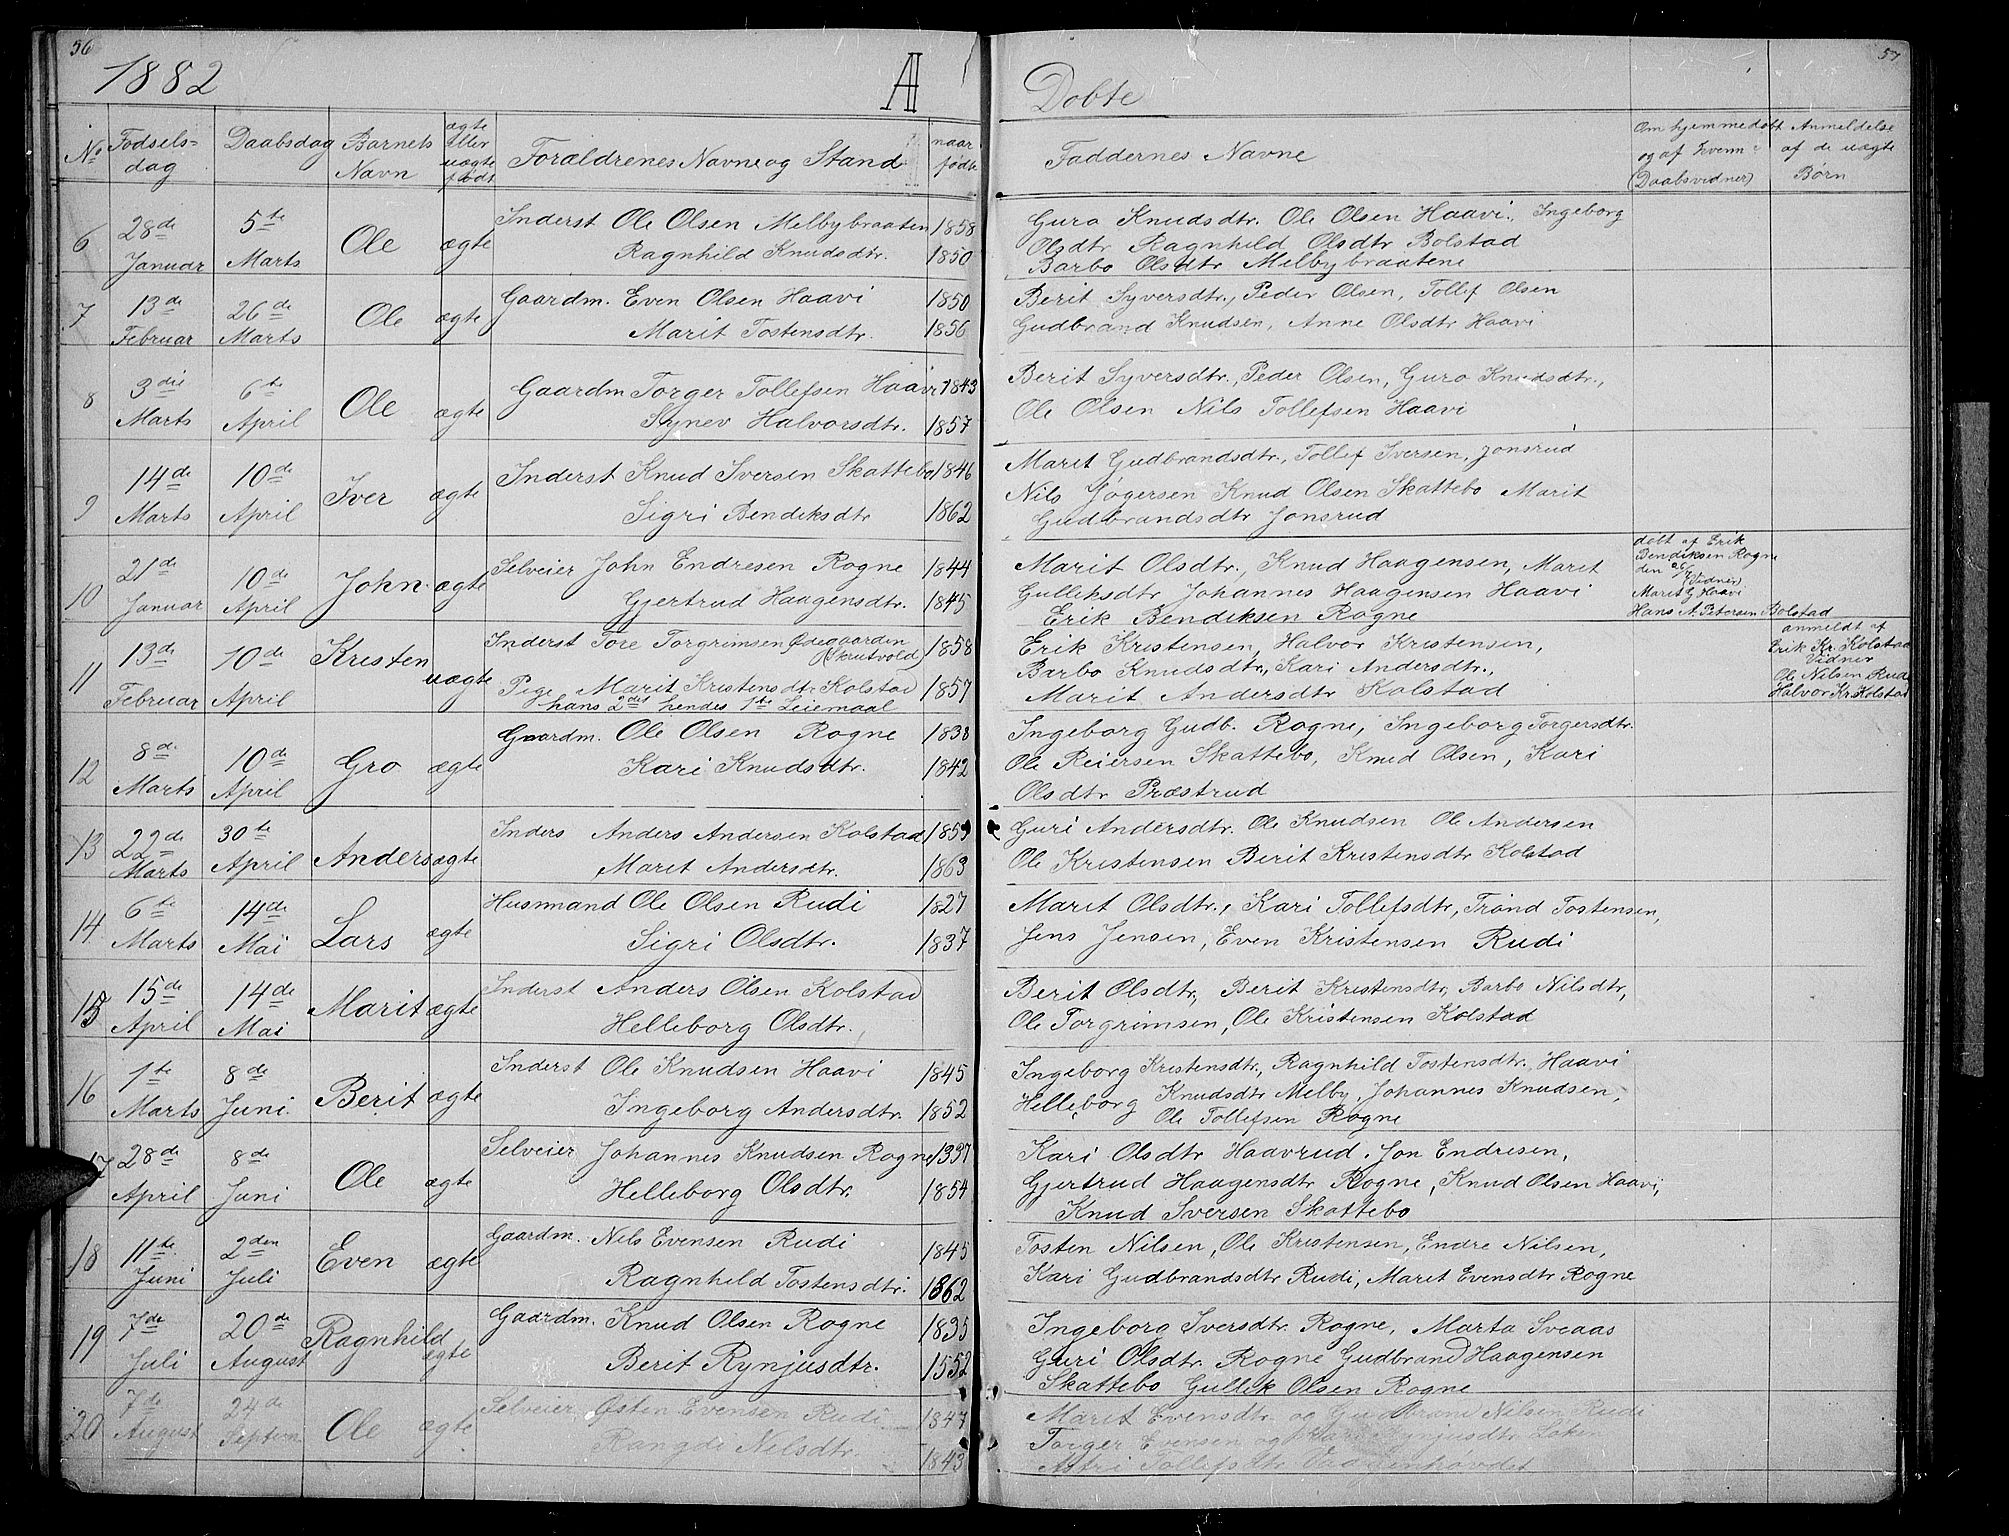 56
1882
A
Døbte
57
No
Fødsels-
dag
Daabsdag
Barnets
Navn
ægte
eller
uægte
født
Forældrenes Navne og Stand
naar
født
Faddernes Navne
Om hjemmedøbt
og af hvem
(Daabsvidner)
Anmeldelse
af de uægte
Børn
6
28de
Januar
5te
Marts
Ole
ægte
Inderst Ole Olsen Melbybraaten 1858
Ragnhild Knudsdtr. 1850
Guro Knudsdtr. Ole Olsen Haavi. Ingeborg
Olsdtr Ragnhild Olsdtr Bolstad
Barbo Olsdtr Melbybraatene
7
13de
Februar
26de
Marts
Ole
ægte
Gaardm. Even Olsen Haavi 1850
Marit Tostensdtr. 1856
Berit Syversdtr., Peder Olsen, Tollef Olsen
Gudbrand Knudsen, Anne Olsdtr Haavi
8
3die
Marts
6te
April
Ole
ægte
Gaardm Torger Tollefsen Haavi 1843
Synev Halvorsdtr. 1857
Berit Syversdtr., Peder Olsen, Guro Knudsdtr.,
Ole Olsen Nils Tollefsen Haavi
9
14de
Marts
10de
April
Iver
ægte
Inderst Knud Iversen Skattebo 1846
Sigri Bendiksdtr 1862
Marit Gudbrandsdtr., Tollef Iversen, Jonsrud
Nils Jøgersen Knud Olsen Skattebo Marit
Gudbrandsdtr Jonsrud
10
21de
Januar
10de
April
John
ægte
Selveier John Endresen Rogne 1844
Gjertrud Haagensdtr. 1845
Marit Olsdtr., Knud Haagensen, Marit
Gulliksdtr Johannes Haagensen Haavi
Erik Bendiksen Rogne
døbt af Erik
Bendiksen Rogne
den
(Vidner)
Marit G Haavi
Hans A. Petersen Bolstad
11
13de
Februar
10de
April
Kristen
uægte
Inderst Tore Torgrimsen Ødegaarden
(Skrutvold) 1858
Pige Marit Kristensdtr Kolstad 1857
hans 2det hendes 1te Leiemaal
Erik Kristensen, Halvor Kristensen,
Barbo Knudsdtr., Kari Andersdtr.,
Marit Andersdtr Kolstad
anmeldt af
Erik Kr. Kolstad
Vidner
Ole Nilsen Rudi
Halvor Kr Kolstad
12
8de
Marts
10de
April
Gro
ægte
Gaardm. Ole Olsen Rogne 1838
Kari Knudsdtr. 1842
Ingeborg Gudb. Rogne, Ingeborg Torgersdtr.
Ole Reiersen Skattebo, Knud Olsen, Kari
Olsdtr Præstrud
13
22de
Marts
30te
April
Anders
ægte
Inders Anders Andersen Kolstad 1859
Marit Andersdtr. 1863
Guri Andersdtr. Ole Knudsen Ole Andersen
Ole Kristensen Berit Kristensdtr Kolstad
14
6te
Marts
14de
Mai
Lars
ægte
Husmand Ole Olsen Rudi 1827
Sigri Olsdtr. 1837
Marit Olsdtr., Kari Tollefsdtr, Trond Tostensen,
Jens Jensen, Even Kristensen Rudi
15
15de
April
14de
Mai
Marit
ægte
Inderst Anders Olsen Kolstad
Helleborg Olsdtr.
Berit Olsdtr, Berit Kristensdtr, Barbo Nilsdtr,
Ole Torgrimsen, Ole Kristensen Kolstad
16
1te
Marts
8de
Juni.
Berit
ægte
Inderst Ole Knudsen Haavi 1845
Ingeborg Andersdtr. 1852
Ingeborg Kristensdtr., Ragnhild Tostensdtr. Haavi
Helleborg Knudsdtr Melby, Johannes Knudsen,
Ole Tollefsen Rogne
17
28de
April
8de
Juni
Ole
ægte
Selveier Johannes Knudsen Rogne 1837
Helleborg Olsdtr. 1854
Kari Olsdtr Haavrud. Jon Endresen,
Gjertrud Haagensdtr Rogne, Knud Olsen Haavi,
Knud Iversen Skattebo
18
11te
Juni
2den
Juli
Even
ægte
Gaardm. Nils Evensen Rudi 1845
Ragnhild Tostensdtr. 1862
Tosten Nilsen, Ole Kristensen, Endre Nilsen,
Kari Gudbrandsdtr Rudi, Marit Evensdtr Rogne
19
7de
Juli
20de
August
Ragnhild
ægte
Gaardm. Knud Olsen Rogne 1835
Berit Rynjusdtr. 1552
Ingeborg Iversdtr. Rogne, Marta Sveaas
Guri Olsdtr. Rogne Gudbrand Haagensen
Skattebo Gullik Olsen Rogne
20
7de
August
24de
Septem
Ole
ægte
Selveier Østen Evensen Rudi 1847
Rangdi Nilsdtr. 1843
Marit Evensdtr og Gudbrand Nilsen Rudi
Torger Evensen og Rynjusdtr
Astri Tollefsdtr